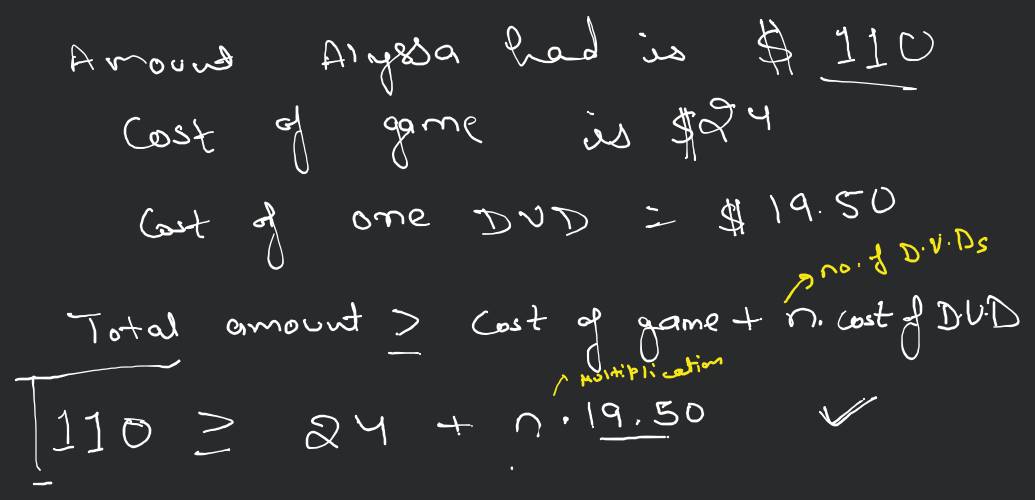 Amount Alyssa had is $ 110
Cost of game is $24
Cost of one DVD = $ 19.50
no. of D.V.Ds
Total amount ≥ Cost of game + n. cost of D.V.D
Multiplication
110 ≥ 24 + n · 19.50 ✓